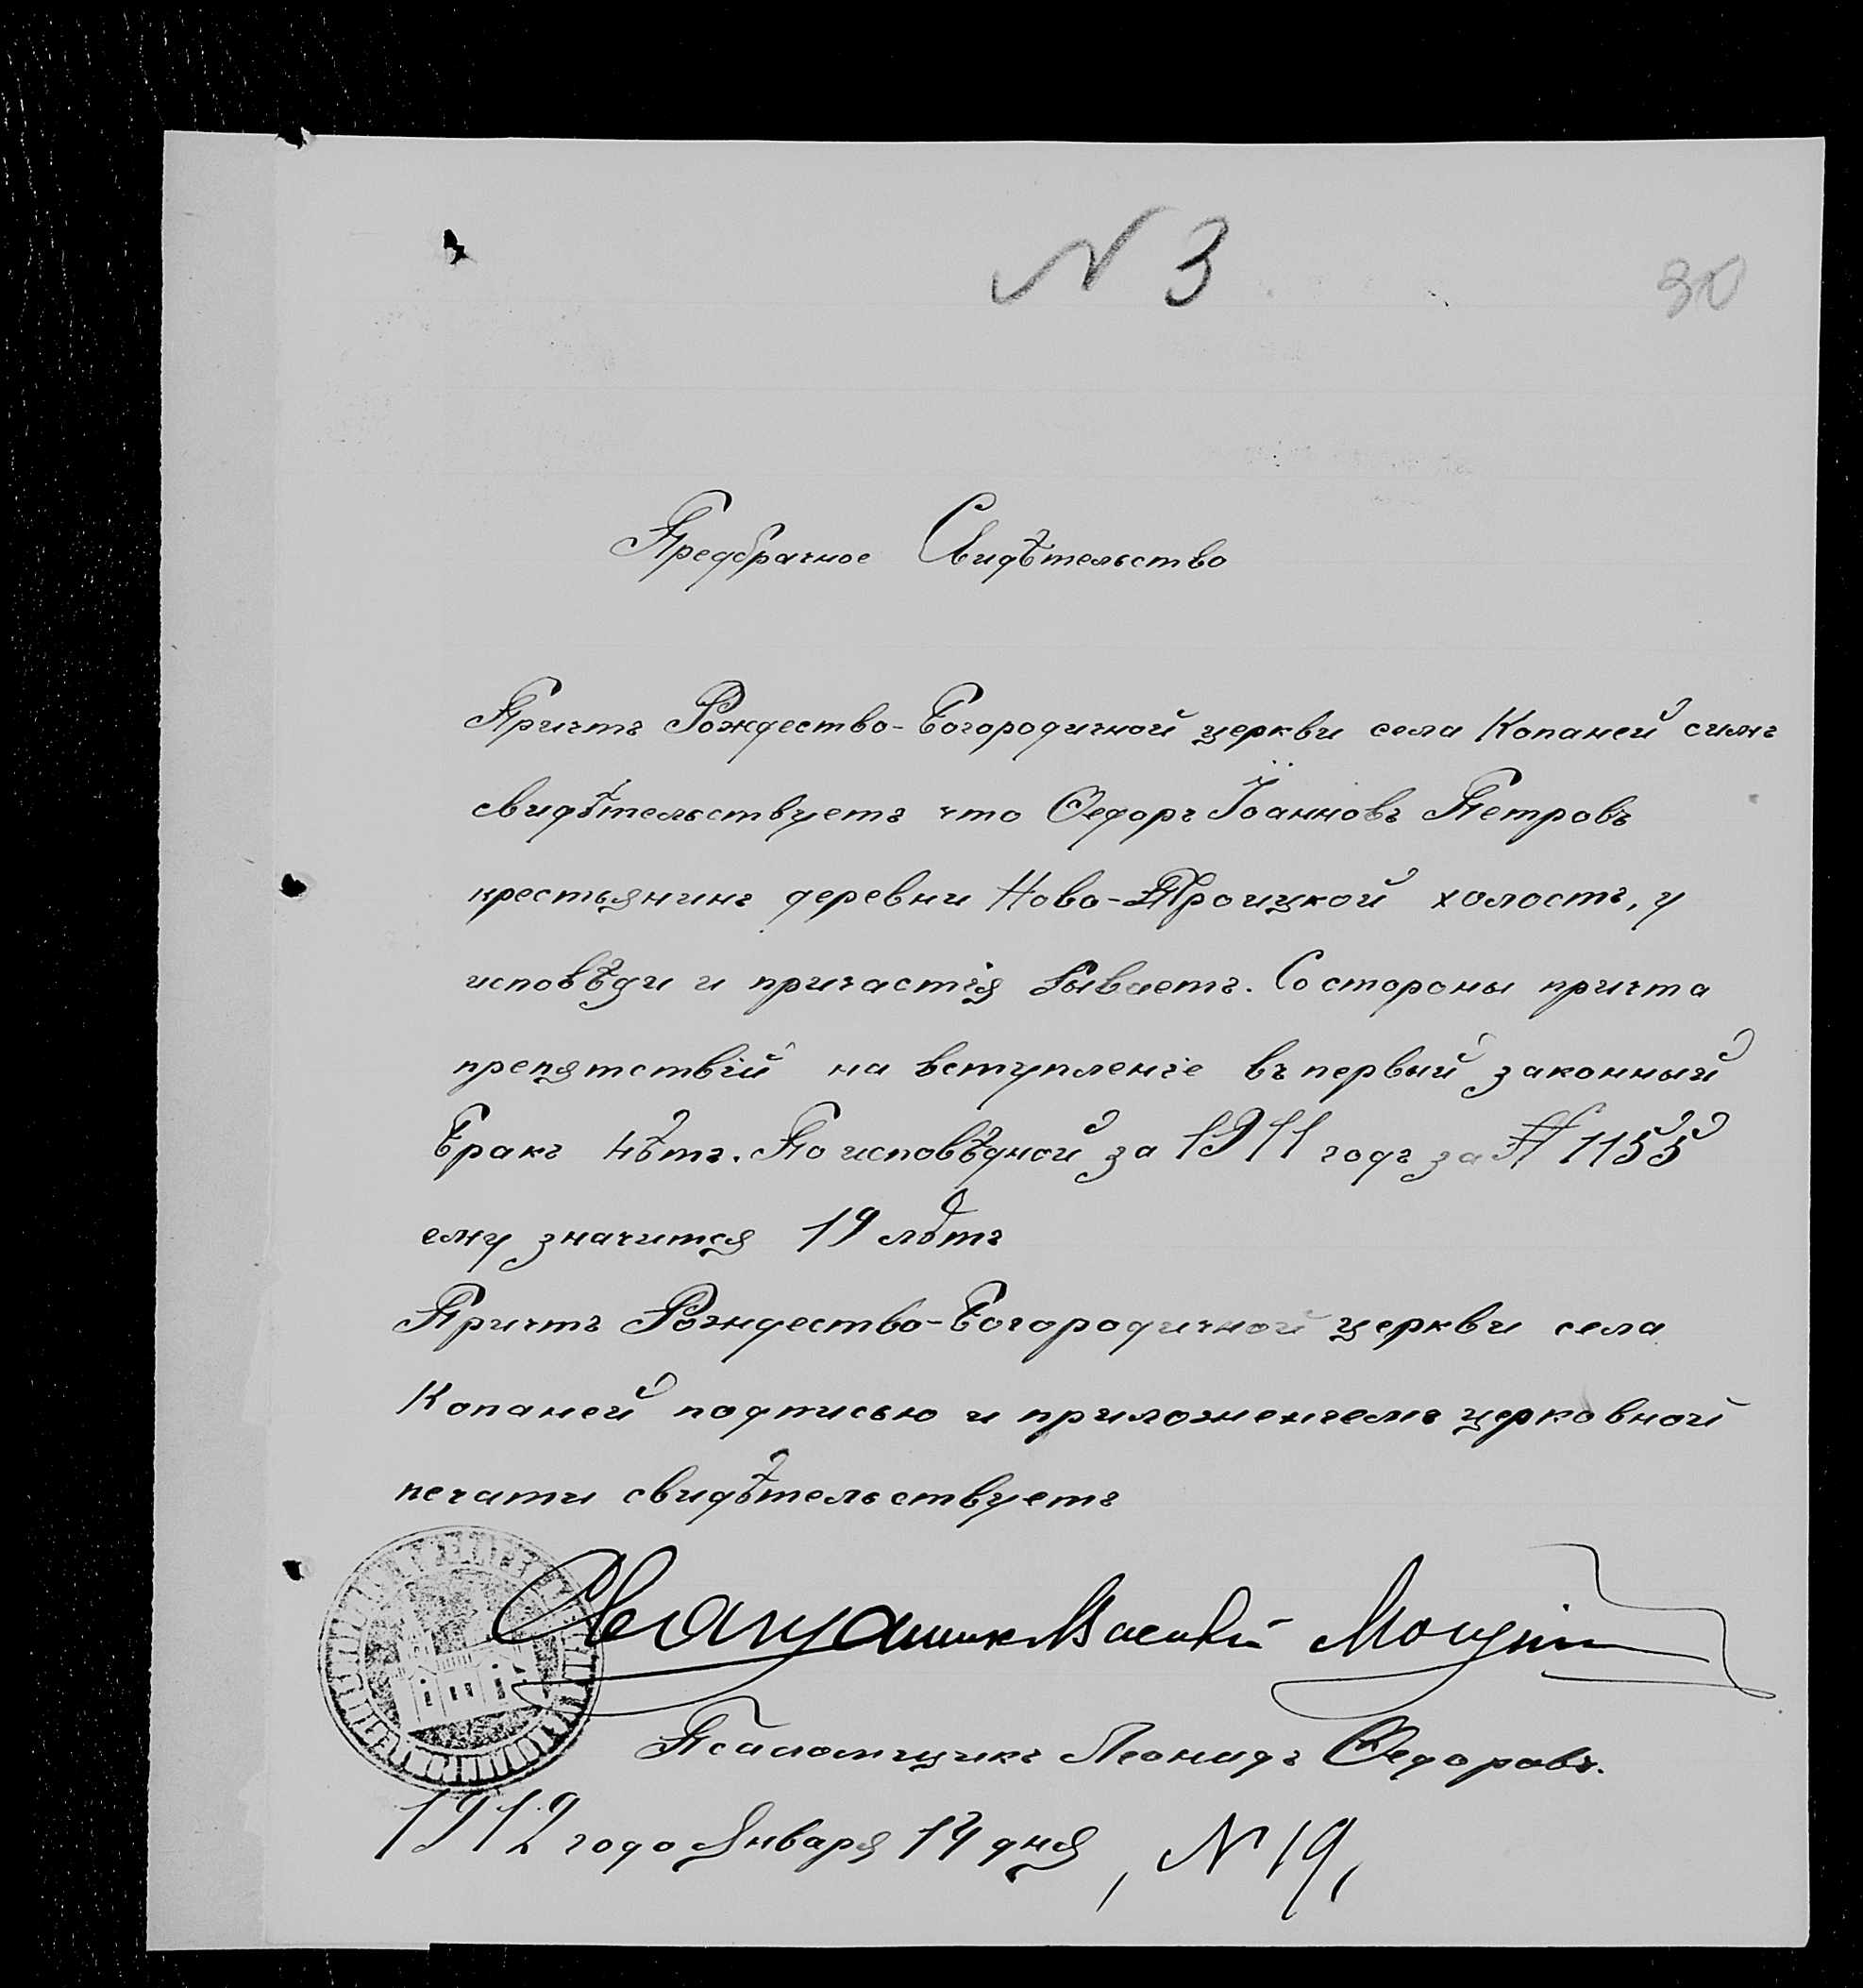 № 3
30
Предбрачное Свидѣтельство
Причтъ Рождество-Богородичной церкви села Копаней симъ
свидѣтельствуетъ что Ѳедоръ Іоанновъ Петровъ
крестьянинъ деревни Ново-Троицкой холостъ, у
исповѣди и причастія бываетъ. Со стороны причта
препятствій на вступленіе въ первый законный
бракъ нѣтъ. По исповѣдной за 1911 годъ за № 1155
ему значится 19 лѣтъ
Причтъ Рождество-Богородичной церкви села
Копаней подписью и приложеніемъ церковной
печати свидѣтельствуетъ
Священникъ Василій
Псаломщикъ Леонидъ Ѳедоровъ.
1912 года Января 14 дня, № 19,